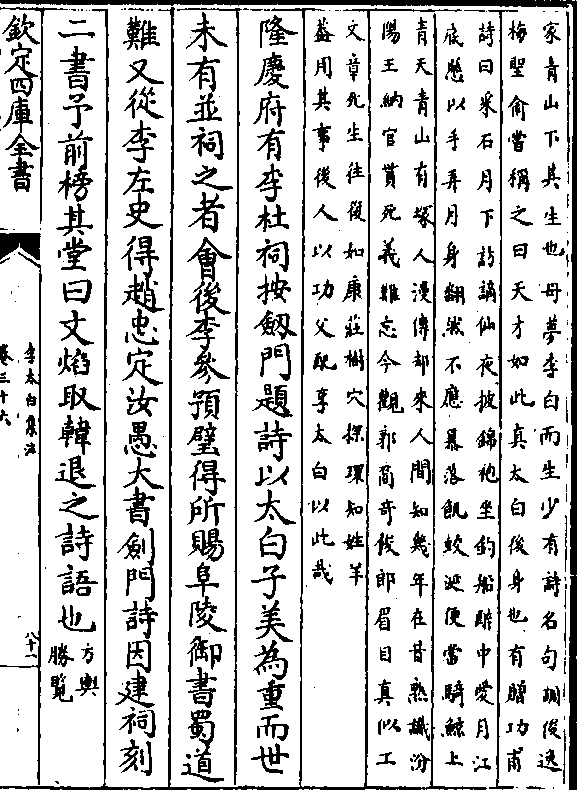 家青山下其生也母夢李白而生少有詩名句調俊逸
梅聖俞嘗稱之曰天才如此真太白後身也有贈功甫
詩曰采石月下訪謫仙夜披錦袍坐釣船醉中愛月江
底懸以手弄月身翻然不應暴落飢蛟涎便當騎鯨上
青天青山有塚人漫傳却來人間知幾年在昔熟識汾
陽王納官貰死義難忘今觀郭裔奇俊郎眉目真似工
文章死生往復如康莊樹穴探環知姓羊
葢用其事後人以功父配享太白以此哉
隆慶府有李杜祠按劔門題詩以太白子美為重而世
未有並祠之者會後李參預璧得所賜阜陵御書蜀道
難又從李左史得趙忠定汝愚大書劍門詩因建祠刻
二書予前榜其堂曰文焰取韓退之詩語也
方輿
勝覽
欽定四庫全書
李太白集注
卷三十六
八十一